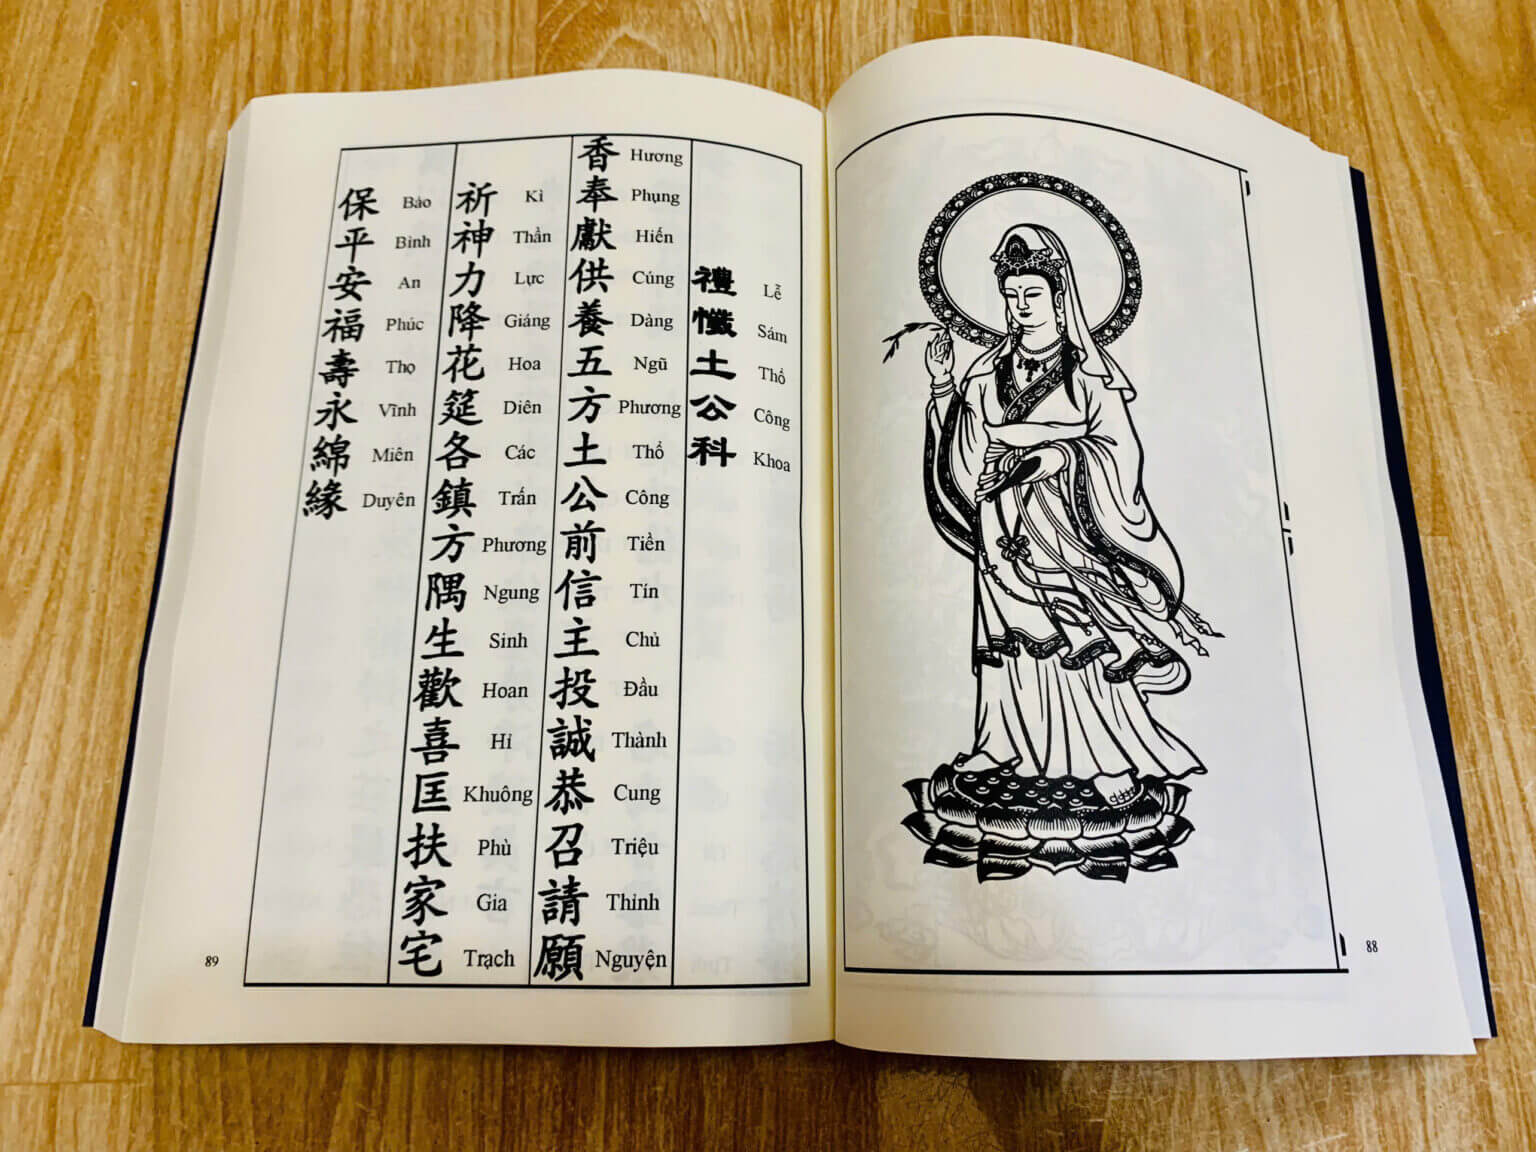 88
禮懺土公科
Lễ Sám Thổ Công Khoa
香奉獻供養五方土公前信主投誠恭召請願
Hương Phụng Hiến Cúng Dàng Ngũ Phương Thổ Công Tiền Tín Chủ Đầu Thành Cung Triệu Thỉnh Nguyện
祈神力降花筵各鎮方隅生歡喜匡扶家宅
Kì Thần Lực Giáng Hoa Diên Các Trấn Phương Ngung Sinh Hoan Hỉ Khuông Phù Gia Trạch
保平安福壽永綿緣
Bảo Bình An Phúc Thọ Vĩnh Miên Duyên
89